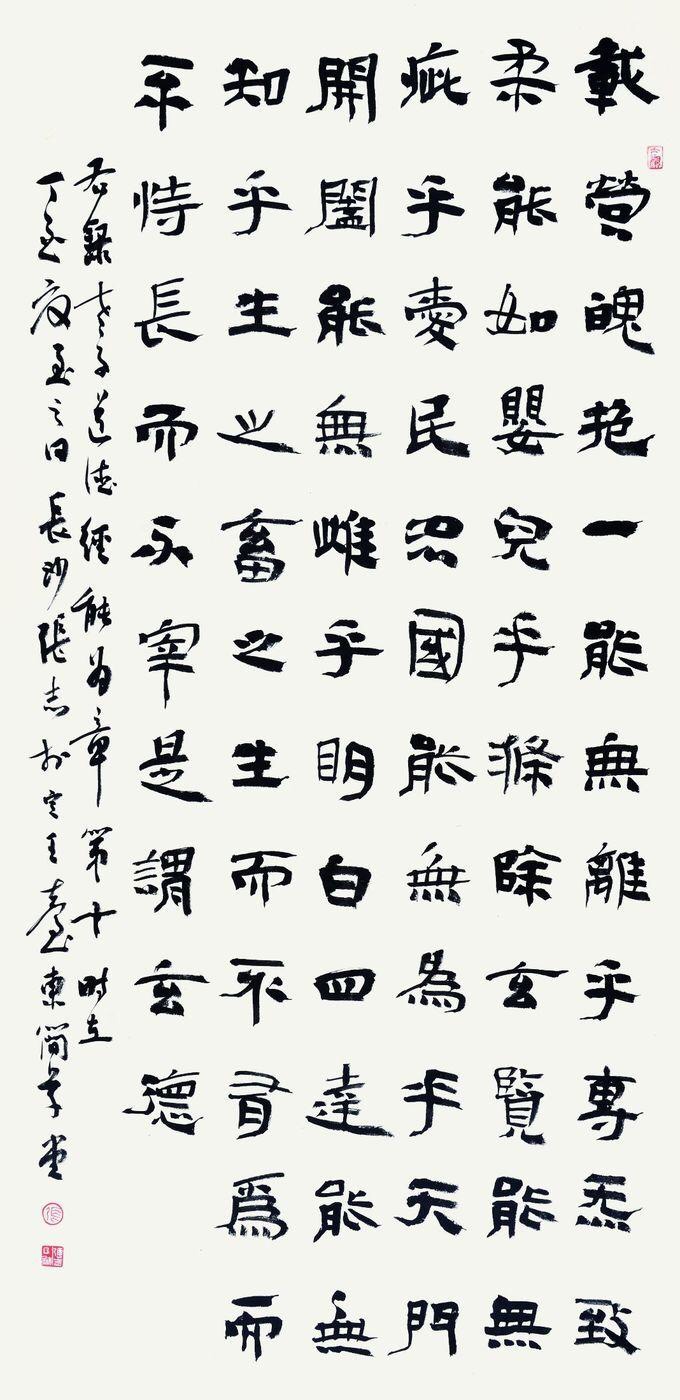 載營魄抱一能無離乎專炁致
柔能如嬰兒乎滌除玄覽能無
疵乎愛民治國能無為乎天門
開闔能無雌乎眀白四達能無
知乎生之畜之生而不有爲而
不恃長而不宰是謂玄德
右錄老子道德經能為章第十時在
丁亥夏至之日長沙張志於定王臺東簡草堂